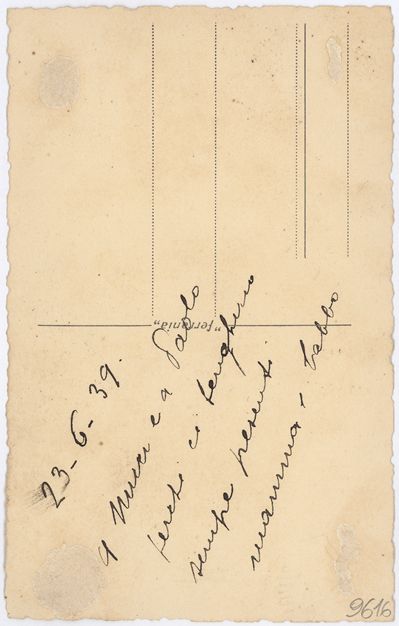 23-6-39.
A Mucci e a Paolo
perché ci tenghino
sempre presenti
mamma - babbo
"ferrania"
9616